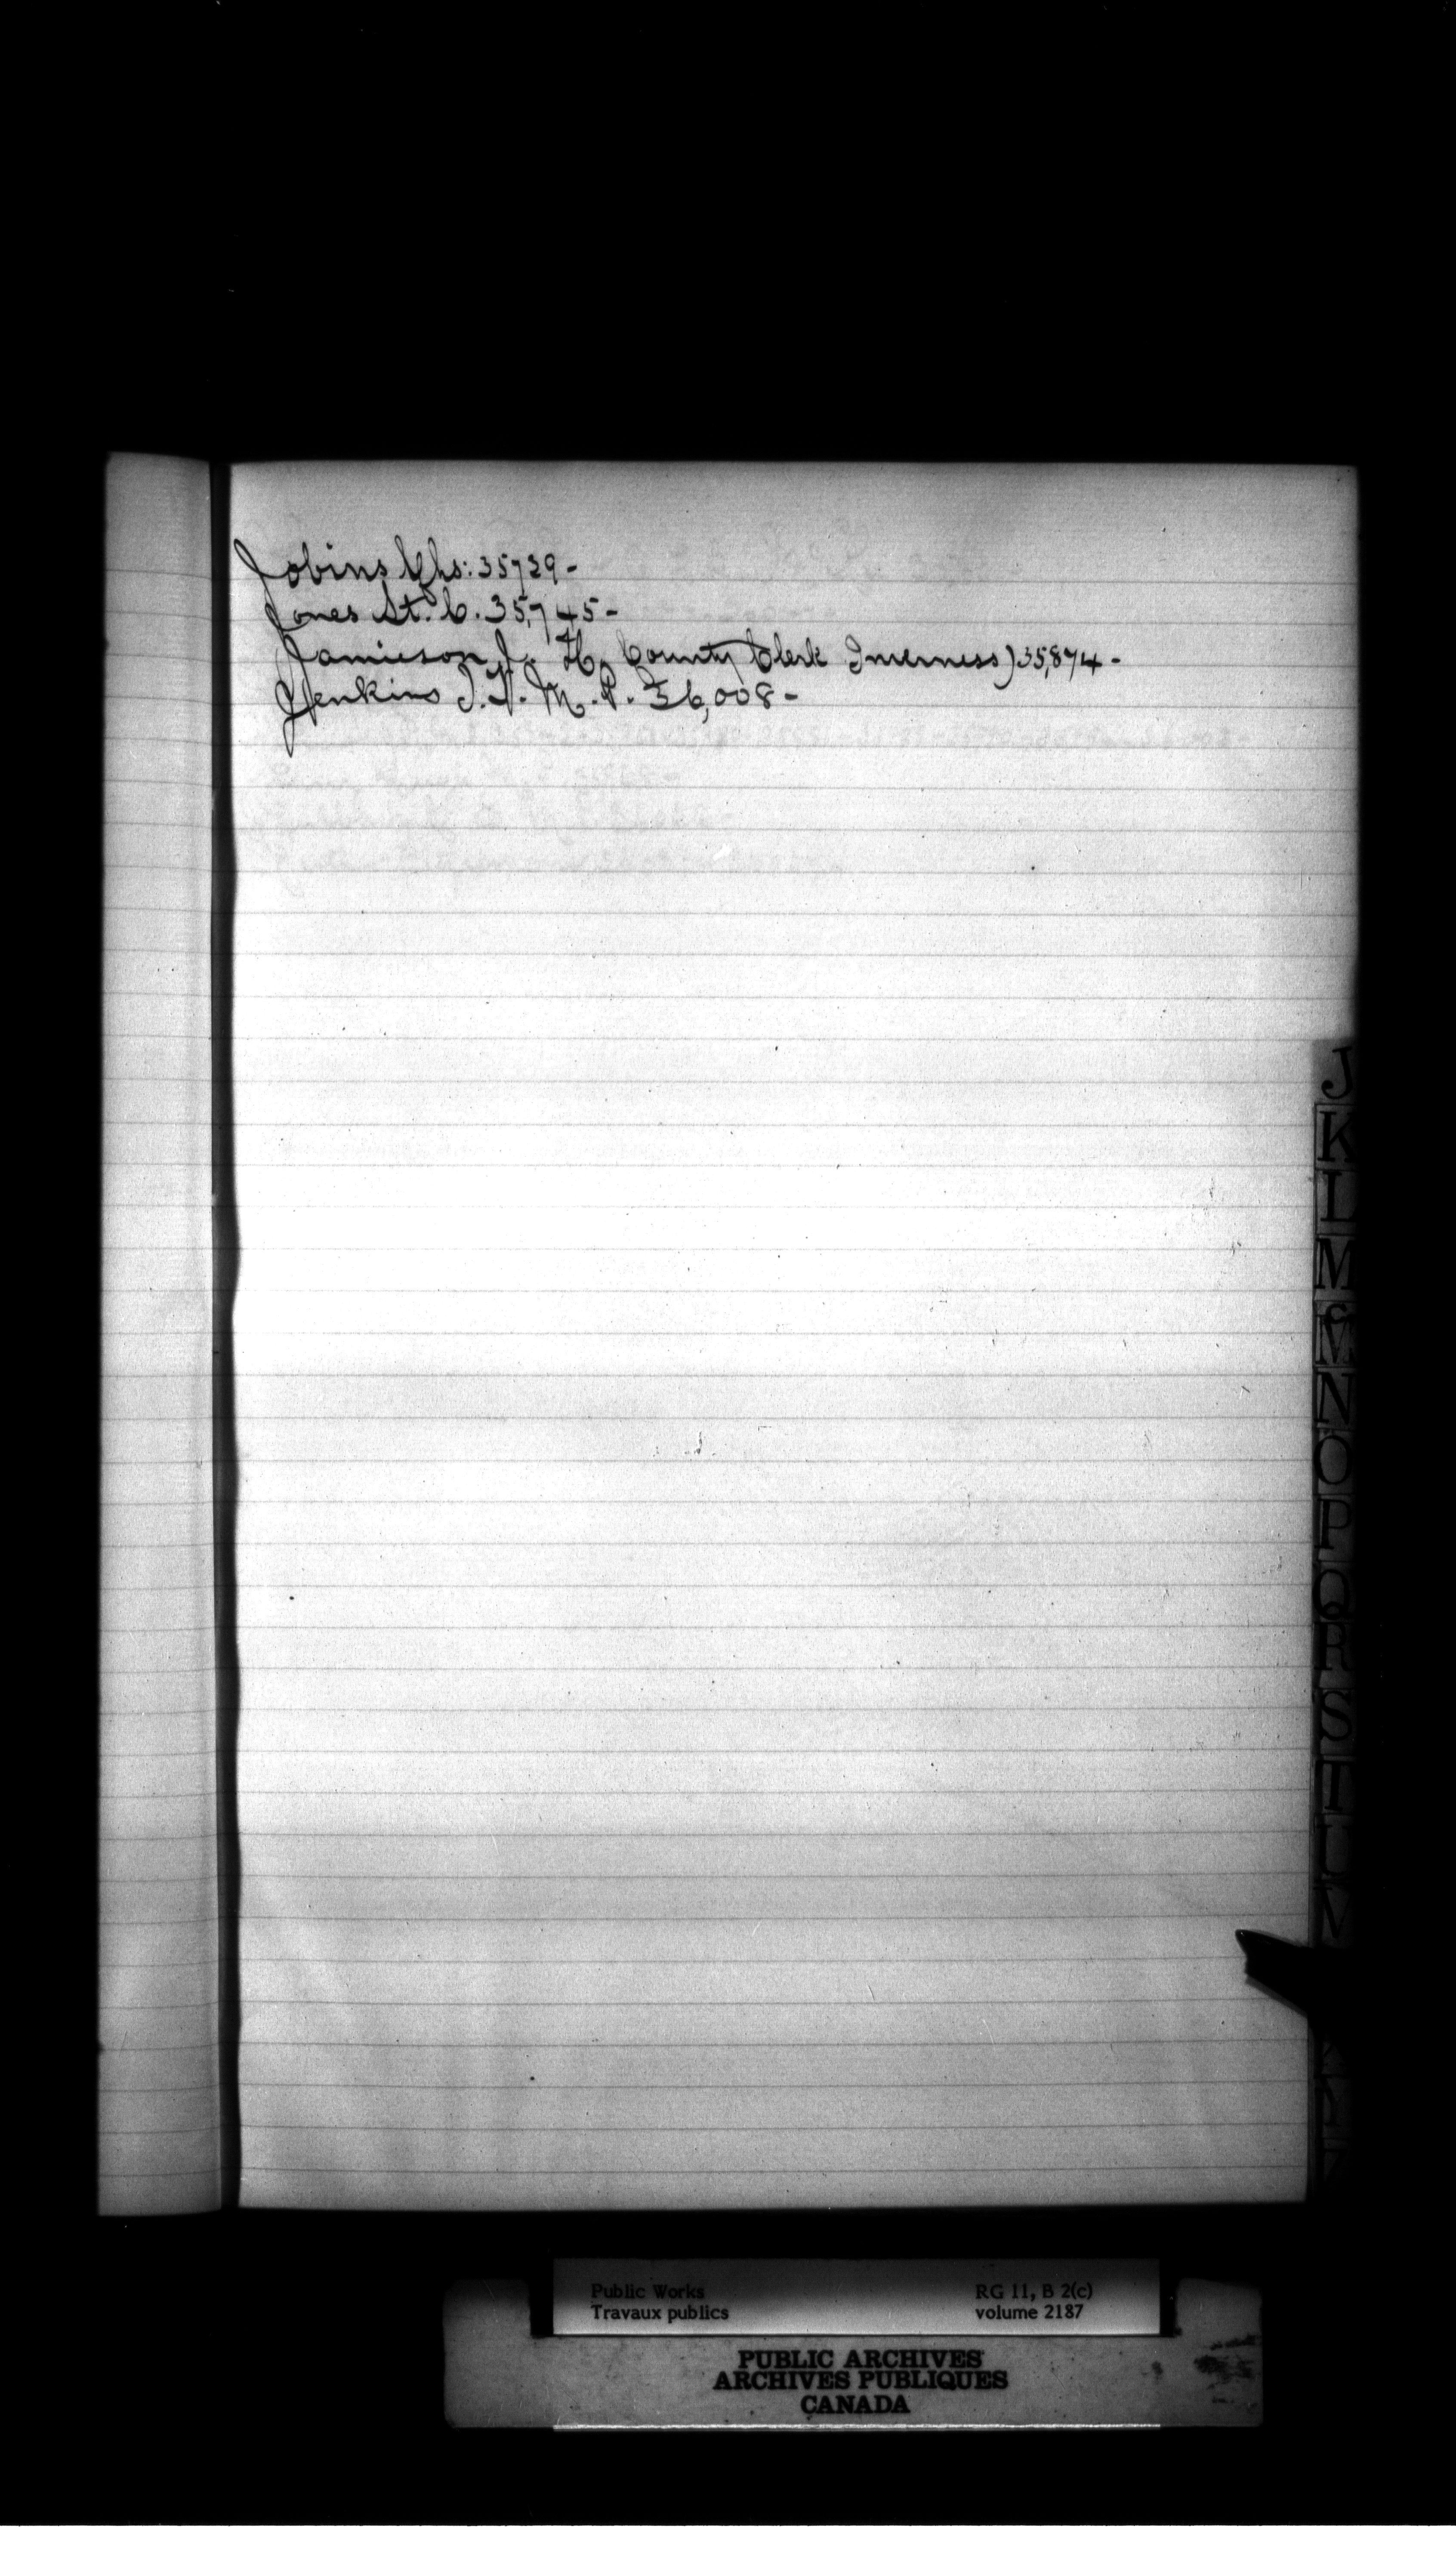 Jobins Chs: 35729-
Jones St. C. 35,745-
Jamieson J. H. County Clerk Inverness) 35,874-
Jenkins S. R. M. P. 36,008-
J
K
L
M
Mc
N
O
P
Q
R
S
T
U
V
Public Works RG 11, B 2(c)
Travaux publics volume 2187
PUBLIC ARCHIVES
ARCHIVES PUBLIQUES
CANADA